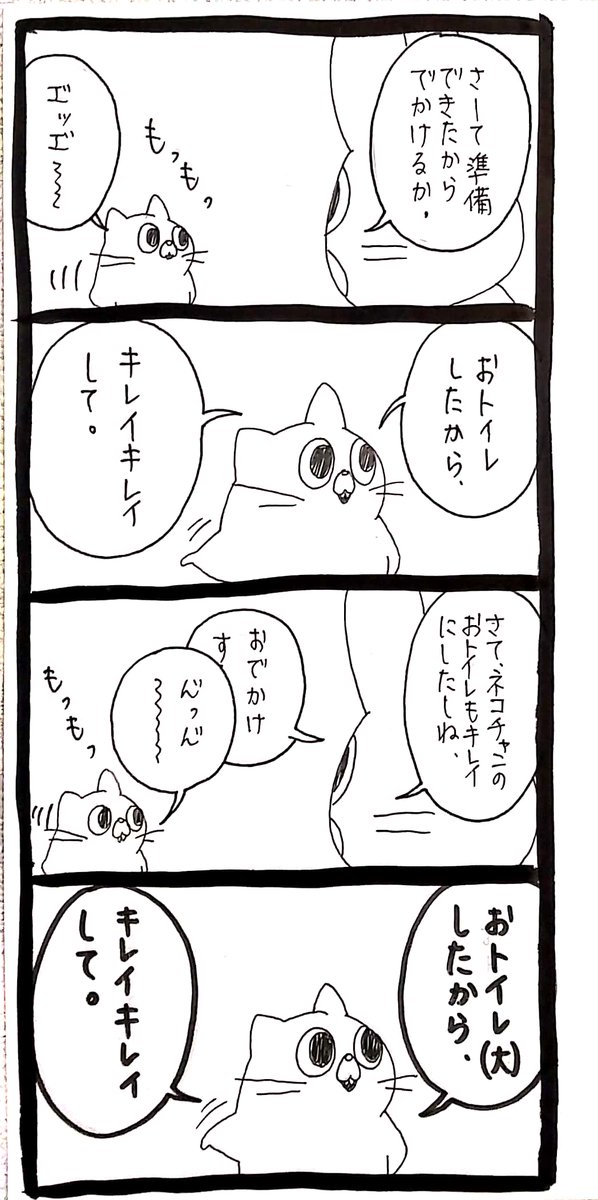 さーて準備
できたから
でかけるか。
もっもっ
エ゛ッエ゛〜〜
おトイレ
したから、
キレイキレイ
して。
さて、ネコチャンの
おトイレもキレイ
にしたしね、
おでかけ
す
ん゛っん゛
〜〜〜〜
もっもっ
おトイレ(大)
したから、
キレイキレイ
して。